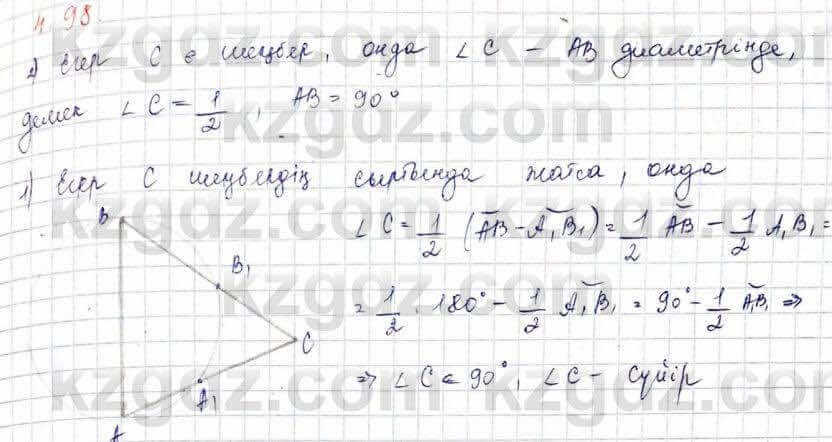 4.98.
2) Егер C ∈ шеңбер, онда ∠C – AB диаметрінде,
демек ∠C = 1/2, AB = 90°
1) Егер C шеңбердің сыртында жатса, онда
∠C = 1/2 (AB – A₁B₁) = 1/2 AB – 1/2 A₁B₁ =
= 1/2 · 180° – 1/2 A₁B₁ = 90° – 1/2 A₁B₁ ⇒
⇒ ∠C < 90°, ∠C – сүйір
B
B₁
C
A₁
A
kzgdz.com
kzgdz.com
kzgdz.com
kzgdz.com
kzgdz.com